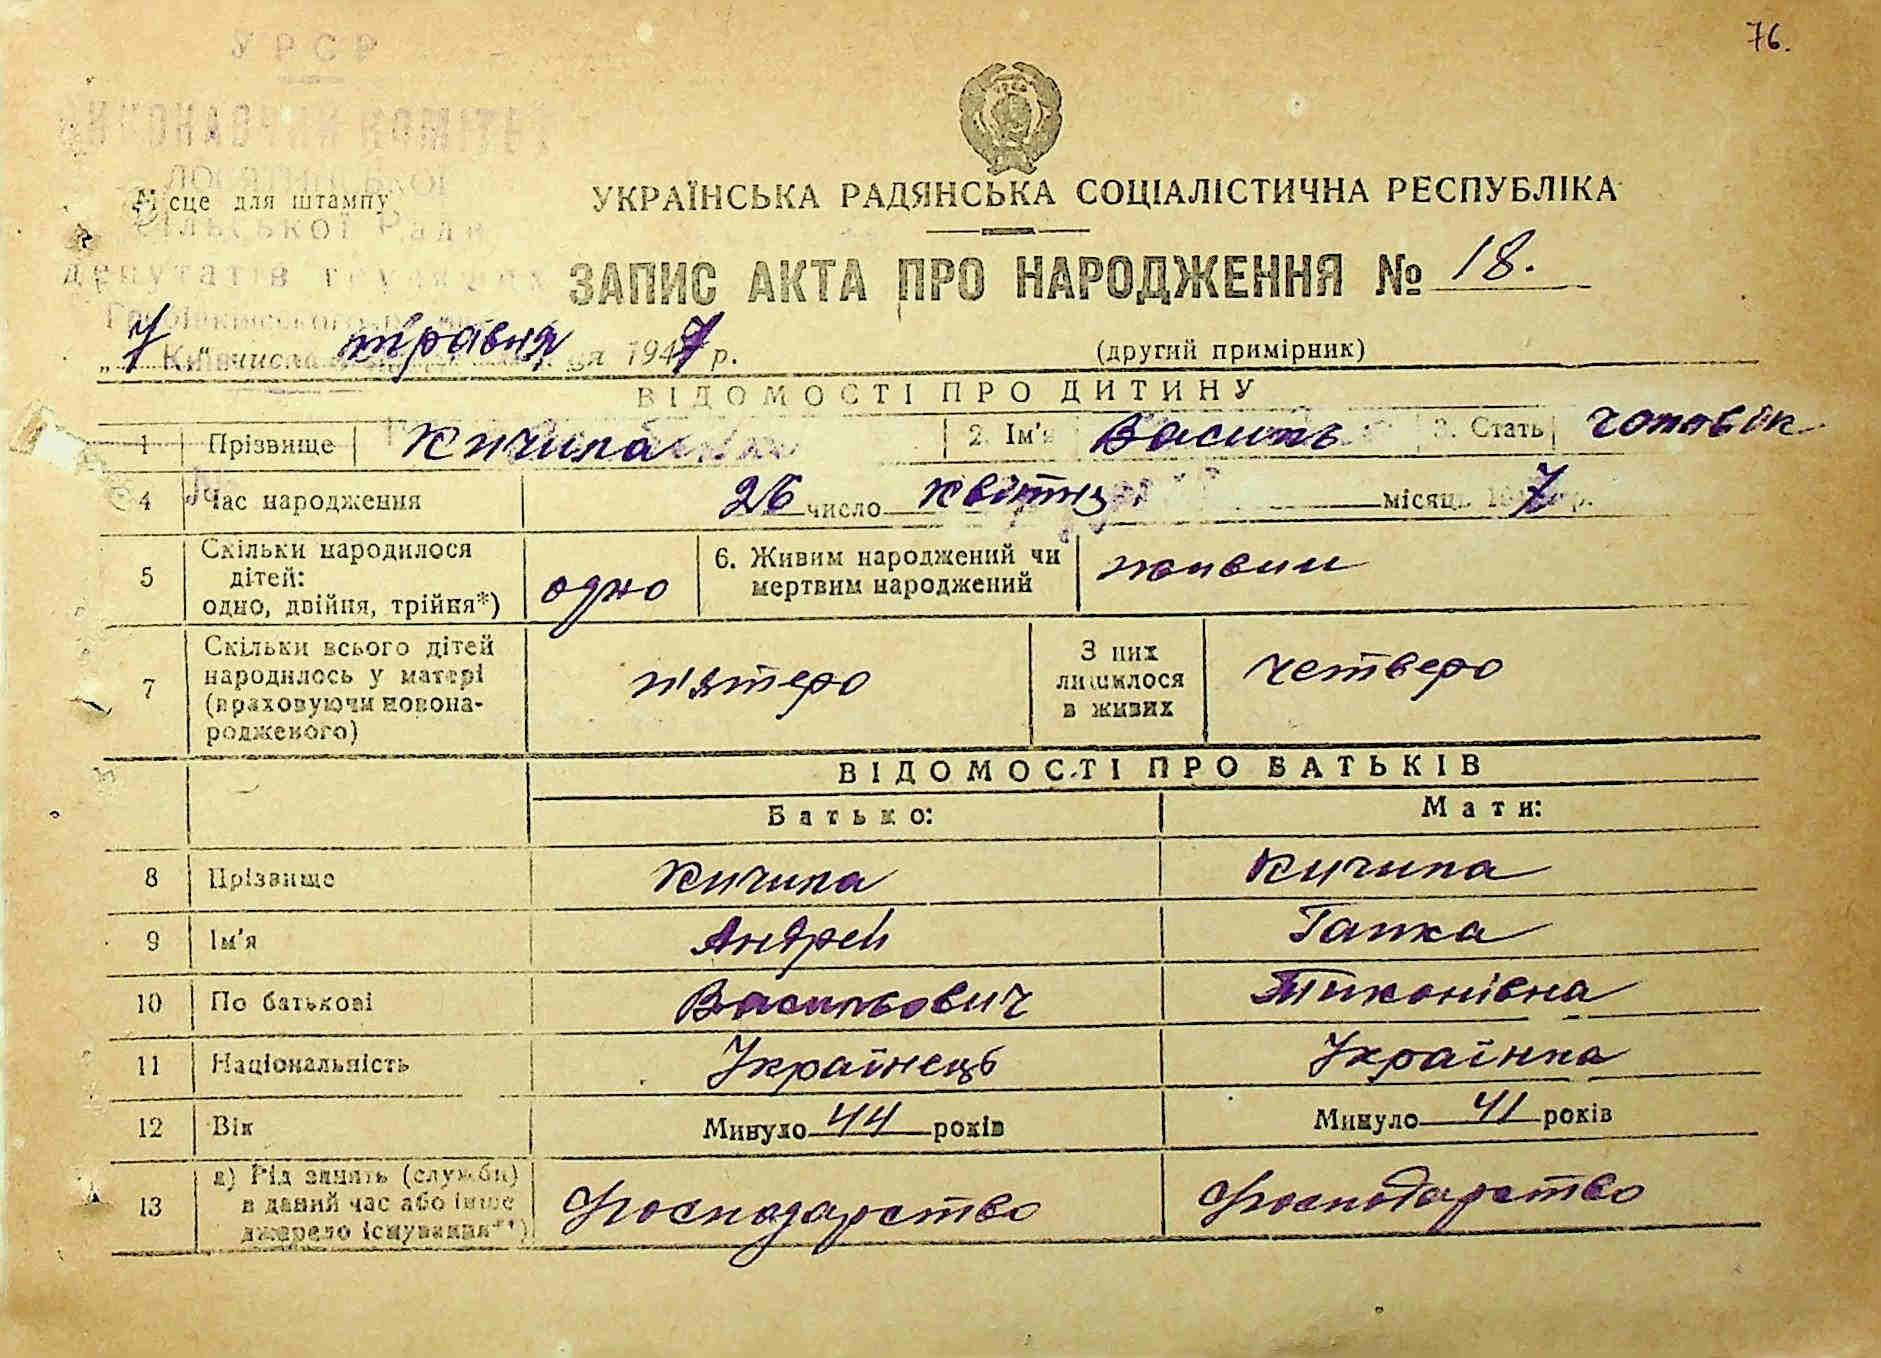 76.
УРСР
ВИКОНАВЧИЙ КОМІТЕТ
Місце для штампу
УКРАЇНСЬКА РАДЯНСЬКА СОЦІАЛІСТИЧНА РЕСПУБЛІКА
Сільської Ради
депутатів трудящих
ЗАПИС АКТА ПРО НАРОДЖЕННЯ № 18.
„7" числа травня 1947 р.
(другий примірник)
ВІДОМОСТІ ПРО ДИТИНУ
1 Прізвище Кичила 2. Ім'я Василь 3. Стать чоловік
4 Час народження 26 число квітня місяць 1947 р.
5 Скільки народилося дітей: одно, двійня, трійня*) одно 6. Живим народжений чи мертвим народжений живим
7 Скільки всього дітей народилось у матері (враховуючи новонародженого) п'ятеро З них лишилося в живих четверо
ВІДОМОСТІ ПРО БАТЬКІВ
Батько: Мати:
8 Прізвище Кичила Кичила
9 Ім'я Андрей Гапка
10 По батькові Васильович Тихонівна
11 Національність Українець Українка
12 Вік Минуло 44 років Минуло 41 років
13 а) Рід занять (служби) в даний час або інше джерело існування**) Господарство Господарство